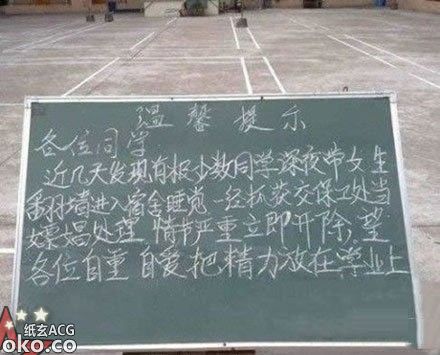 温馨提示
各位同学
近几天发现有极少数同学深夜带女生
翻墙进入宿舍睡觉 一经抓获交保卫处当
嫖娼处理 情节严重立即开除，望
各位自重 自爱把精力放在学业上
纸玄ACG
oko.co